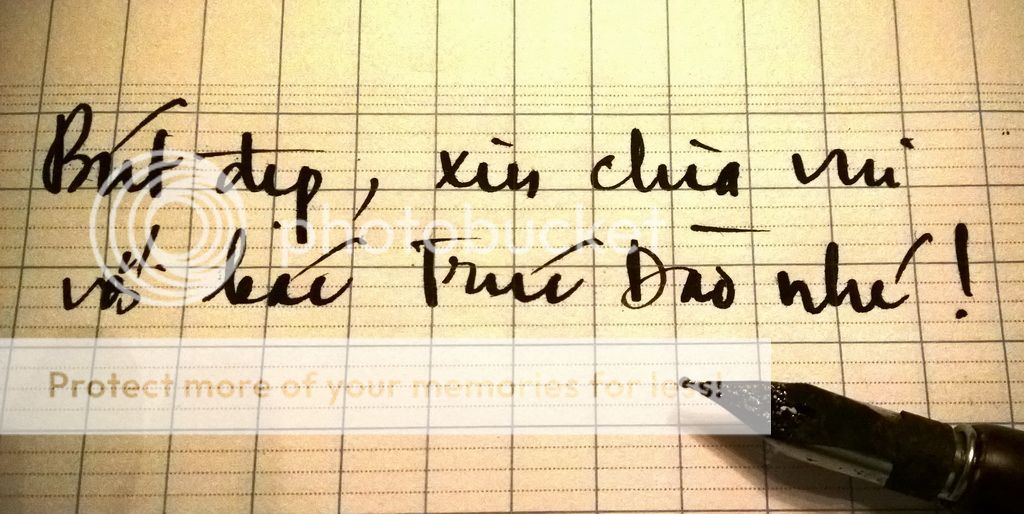 Bút đẹp, xin chia vui
với bác Trúc Đào nhé !
photobucket
Protect more of your memories for less!